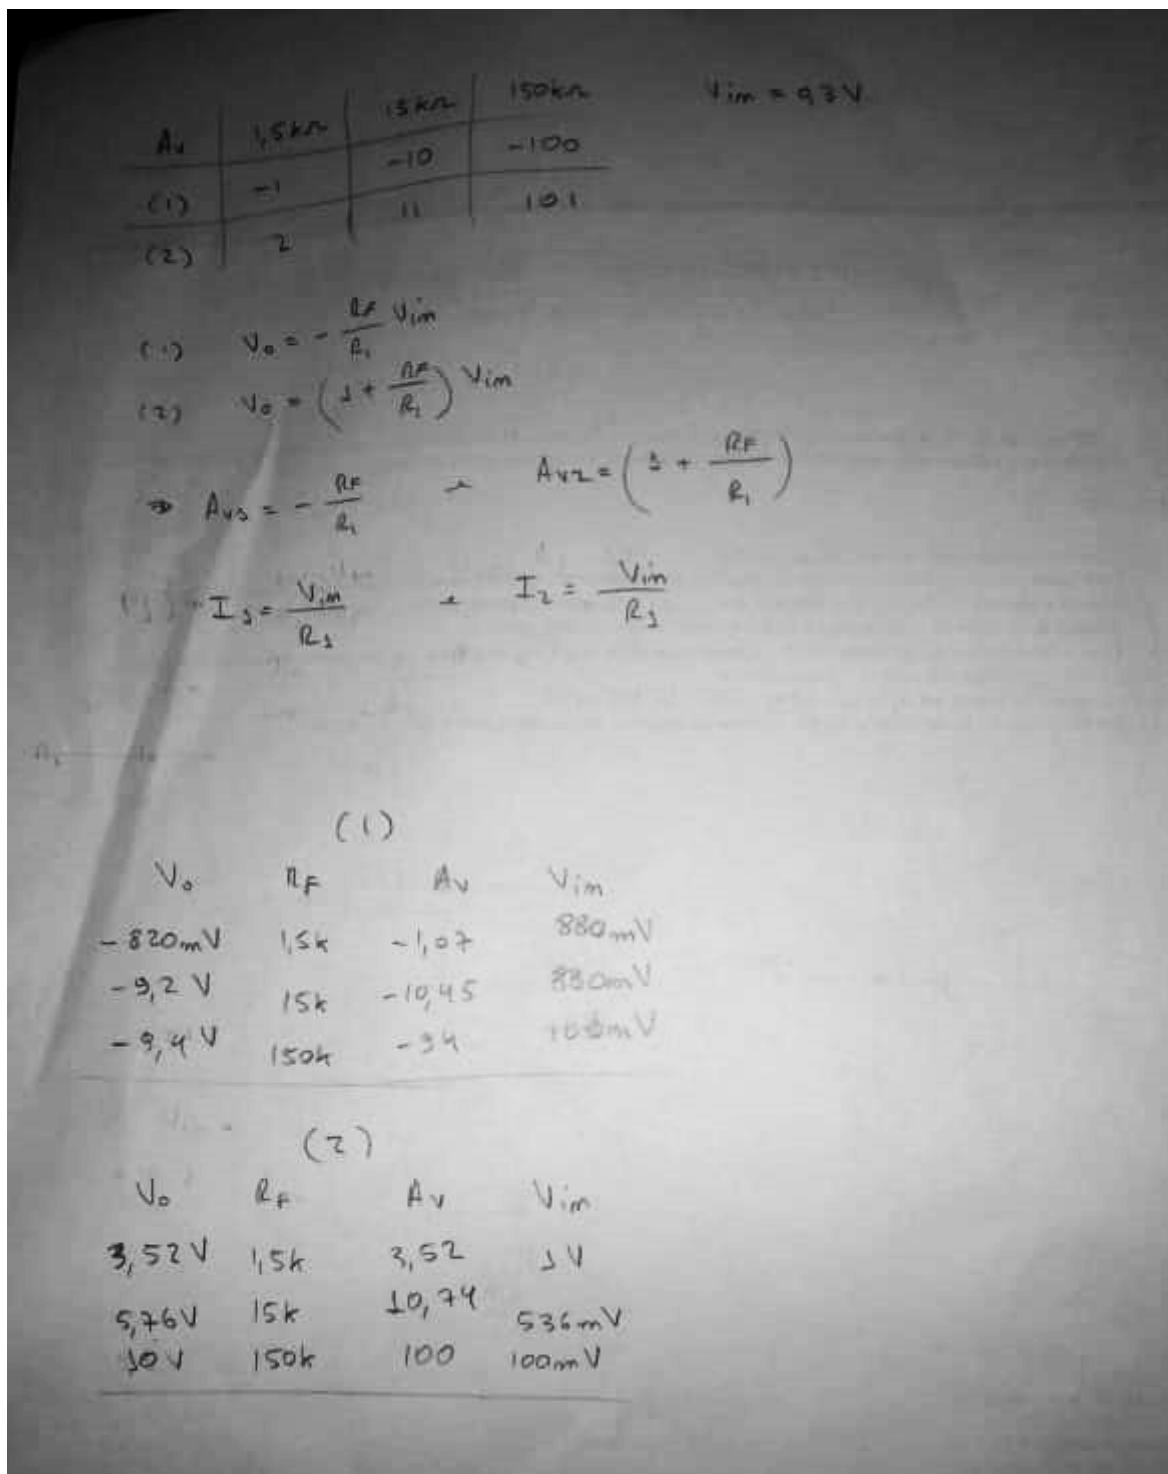 Av | 1,5kΩ | 15kΩ | 150kΩ
Vim = 0,3V
(1) | -1 | -10 | -100
(2) | 2 | 11 | 101
(1) Vo = - RF/R1 Vim
(2) Vo = (1 + RF/R1) Vim
⇒ Av1 = - RF/R1 e Av2 = (1 + RF/R1)
I1 = Vim/R1 e I2 = Vim/R1
(1)
Vo RF Av Vim
-820mV 1,5k -1,07 880mV
-9,2 V 15k -10,45 880mV
-9,4 V 150k -94
(2)
Vo RF Av Vim
3,52V 1,5k 3,52 1V
5,76V 15k 10,74 536mV
10V 150k 100 100mV